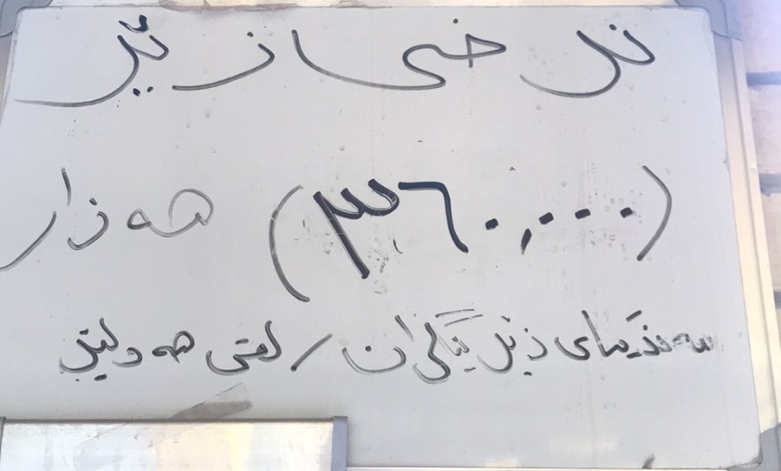 نرخی زێڕ
(٣٦٠,٠٠٠) هەزار
سەندیکای زێڕینگران / لقی هەولێر